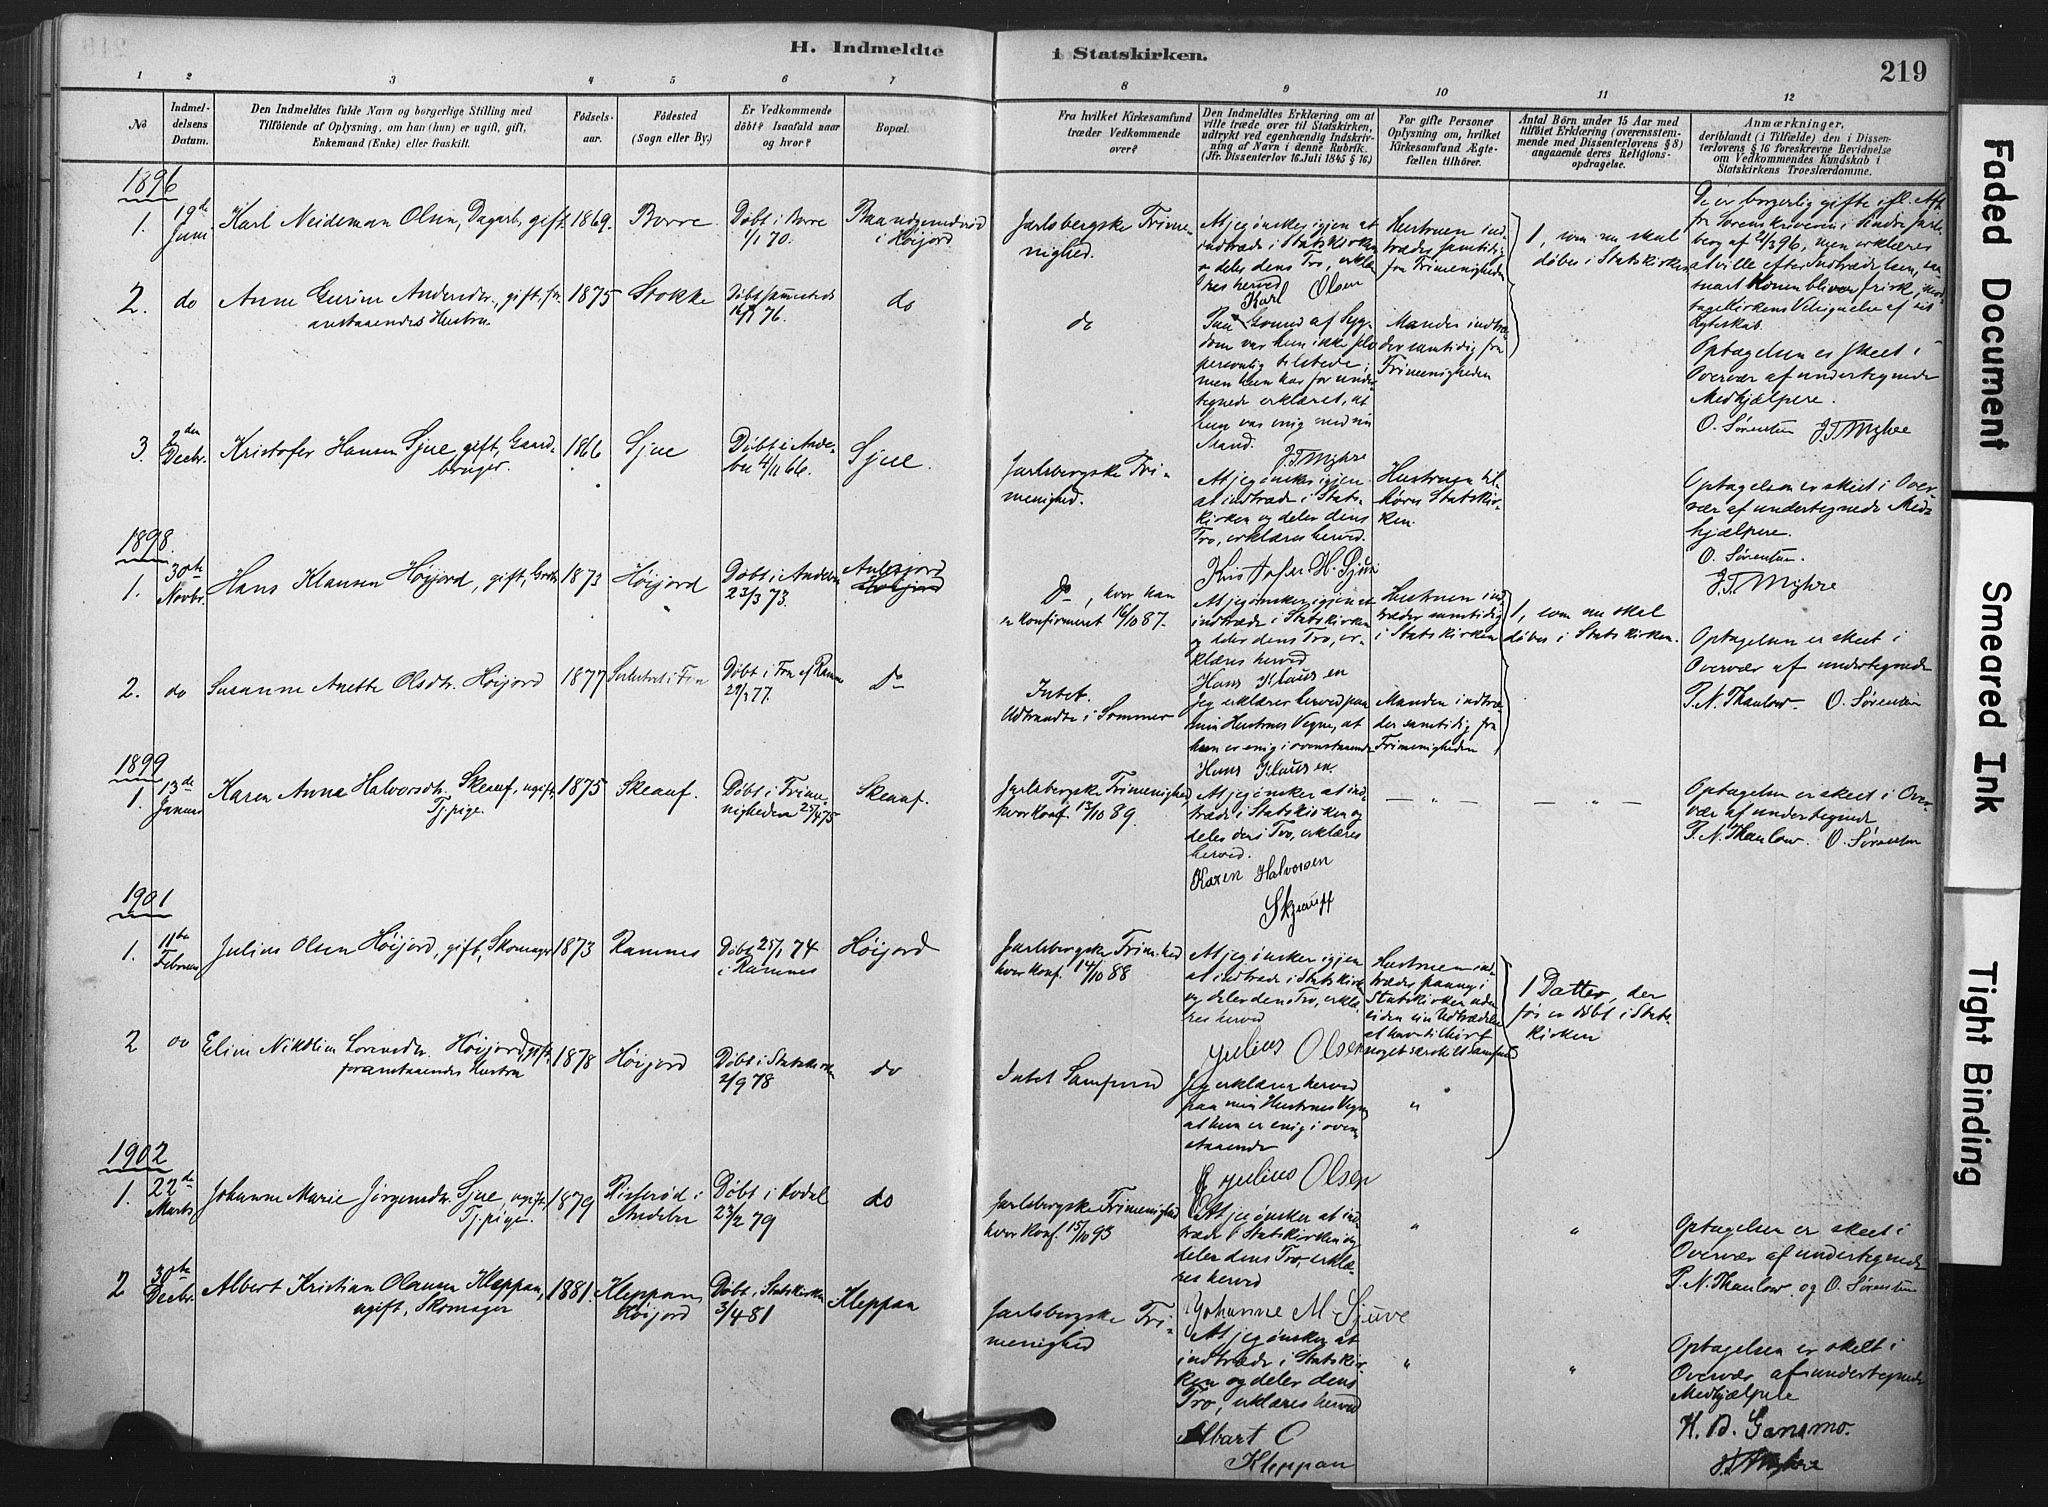 H. Indmeldte i Statskirken.
219
1 2 3 4 5 6 7 8 9 10 11 12
No
Indmel-
delsens
Datum.
Den Indmeldtes fulde Navn og borgerlige Stilling med
Tilföiende af Oplysning, om han (hun) er ugift, gift,
Enkemand (Enke) eller fraskilt.
Födsels-
aar.
Födested
(Sogn eller By.)
Er Vedkommende
döbt? Isaafald naar
og hvor?
Bopæl.
Fra hvilket Kirkesamfund
træder Vedkommende
over?
Den Indmeldtes Erklæring om at
ville træde over til Statskirken,
udtrykt ved egenhændig Indskriv-
ning af Navn i denne Rubrik.
(Jfr. Dissenterlov 16 Juli 1845 § 16)
For gifte Personer
Oplysning om, hvilket
Kirkesamfund Ægte-
fællen tilhörer.
Antal Börn under 15 Aar med
tilföiet Erklæring (overensstem-
mende med Dissenterlovens § 8)
angaaende deres Religions-
opdragelse.
Anmærkninger,
deriblandt (i Tilfælde) den i Dissen-
terlovens § 16 foreskrevne Bevidnelse
om Vedkommendes Kundskab i
Statskirkens Troeslærdomme.
1896
1.
19de
Juni
Karl Neideman Olsen, Dagarb., gift.
1869.
Borre
Døbt i Borre
1/1 70.
i Høijord
Jarlsbergske Frime-
nighed.
At jeg ønsker igjen at
indtræde i Statskirken
og deler dens Tro, erklæ-
res herved
Karl Olsen
Hustruen ind-
træder samtidig
fra Frimenigheden
1, som nu skal
døbes i Statskirken
De er borgerlig gifte ifl. Att.
fra Sorenskriveren i Søndre Jarls-
berg af 21/3 96, men erklærer
at ville efter Indtrædelsen, saa-
snart Konen bliver frisk, mod-
tage Kirkens Velsignelse af sit
Ægteskab.
2.
do
Anne Gurine Andersdr., gift, for-
anstaaendes Hustru
1875
Stokke
Døbt sammesteds
16/1 76.
do
do
Paa Grund af Syg-
dom var hun ikke
personlig tilstede,
men hun har for under-
tegnede erklæret, at
hun var enig med sin
Mand.
J.T. Myhre
Manden indtræ-
der samtidig fra
Frimenigheden
Optagelsen er skeet i
Overvær af undertegnede
Medhjælpere.
O. Sørensen J.T. Myhre
3.
2den
Decbr.
Kristofer Hansen Sjue, gift, Gaard-
bruger.
1866
Sjue
Døbt i Ande-
bu 4/11 66.
Sjue.
Jarlsbergske Fri-
menighed.
At jeg ønsker igjen
at indtræde i Stats-
kirken og deler dens
Tro, erklæres herved.
Kristofer H. Sjue
Hustruen til-
hører Statskir-
ken.
Optagelsen er skeet i Over-
vær af undertegnede Med-
hjælpere.
O. Sørensen.
J.T. Myhre
1898.
1.
30te
Novbr.
Hans Klausen Høijord, gift, Grdbr.
1873
Høijord
Døbt i Andebu
23/3 73.
Høijord
Do, hvor han
er konfirmeret 16/10 87.
At jeg ønsker igjen at
indtræde i Statskirken
og deler dens Tro, er-
klæres herved
Hans Klausen
Hustruen ind-
træder samtidig
i Statskirken
1, som nu skal
døbes i Statskirken.
Optagelsen er skeet i
Overvær af undertegnede
P.N. Thanlow. O. Sørensen
2.
do
Susanne Anette Olsdtr. Høijord
1877
Døbt i Fon af Ramnes
29/1 77.
Do
Intet.
Udtraadte i Sommer
Jeg erklærer herved paa
min Hustrues Vegne, at
hun er enig i ovenstaaende
Hans Klausen.
Manden indtræ-
der samtidig fra
Frimenigheden
1899
1.
13de
Januar
Karen Anne Halvorsdtr. Skeauf, ugift,
Tj.pige.
1875
Skeauf.
Døbt i Frime-
nigheden 25/4 75
Skeauf.
Jarlsbergske Frimenighed,
hvor konf. 13/10 89.
At jeg ønsker at ind-
træde i Statskirken og
deler dens Tro, erklæres
herved.
Karen Halvorsen
Skjauff
— „ —
— „ —
Optagelsen er skeet i Over-
vær af undertegnede
P.N. Thanlow. O. Sørensen
1901
1.
11te
Februar
Julius Olsen Høijord, gift, Skomager
1873
Ramnes
Døbt 25/1 74
i Ramnes
Høijord
Jarlsbergske Frim.hed
hvor konf. 14/10 88
At jeg ønsker igjen
at indtræde i Statskirken
og deler dens Tro, erklæ-
res herved
Julius Olsen
Hustruen ind-
træder paany i
Statskirken uden
siden sin Udtrædelse
at have tilhørt
noget særskilt Samfund
1 Datter, der
før er døbt i Stats-
kirken
2
do
Elise Nikoline Lorensdtr. Høijord, gift,
foranstaaendes Hustru
1878
Høijord
Døbt i Statskirken
2/9 78
do
Intet Samfund
Jeg erklærer herved
paa min Hustrues Vegne
at hun er enig i oven-
staaende
Julius Olsen
„
1902
1.
22de
Marts
Johanne Marie Jørgensdr. Sjue, ugift,
Tj.pige.
1879
Risserød i
Andebu
Døbt i Kodal
23/2 79
do
Jarlsbergske Frimenighed
hvor konf. 15/10 93
At jeg ønsker at ind-
træde i Statskirken og
deler dens Tro, erklæ-
res herved
Johanne M. Sjuve
„
„
Optagelsen er skeet i
Overvær af undertegnede
P.N. Thanlow og O. Sørensen
2
30te
Decbr.
Albert Kristian Olausen Kleppan,
ugift, Skomager
1881.
Kleppan,
Høijord
Døbt i Statskirken
3/4 81
Kleppan
Jarlsbergske Fri-
menighed
At jeg ønsker at
indtræde i Statskir-
ken og deler dens
Tro, erklæres herved
Albart O
Kleppan
„
„
Optagelsen er skeet i
Overvær af undertegnede
Medhjælpere
J.T. Myhre
Faded Document
Smeared Ink
Tight Binding